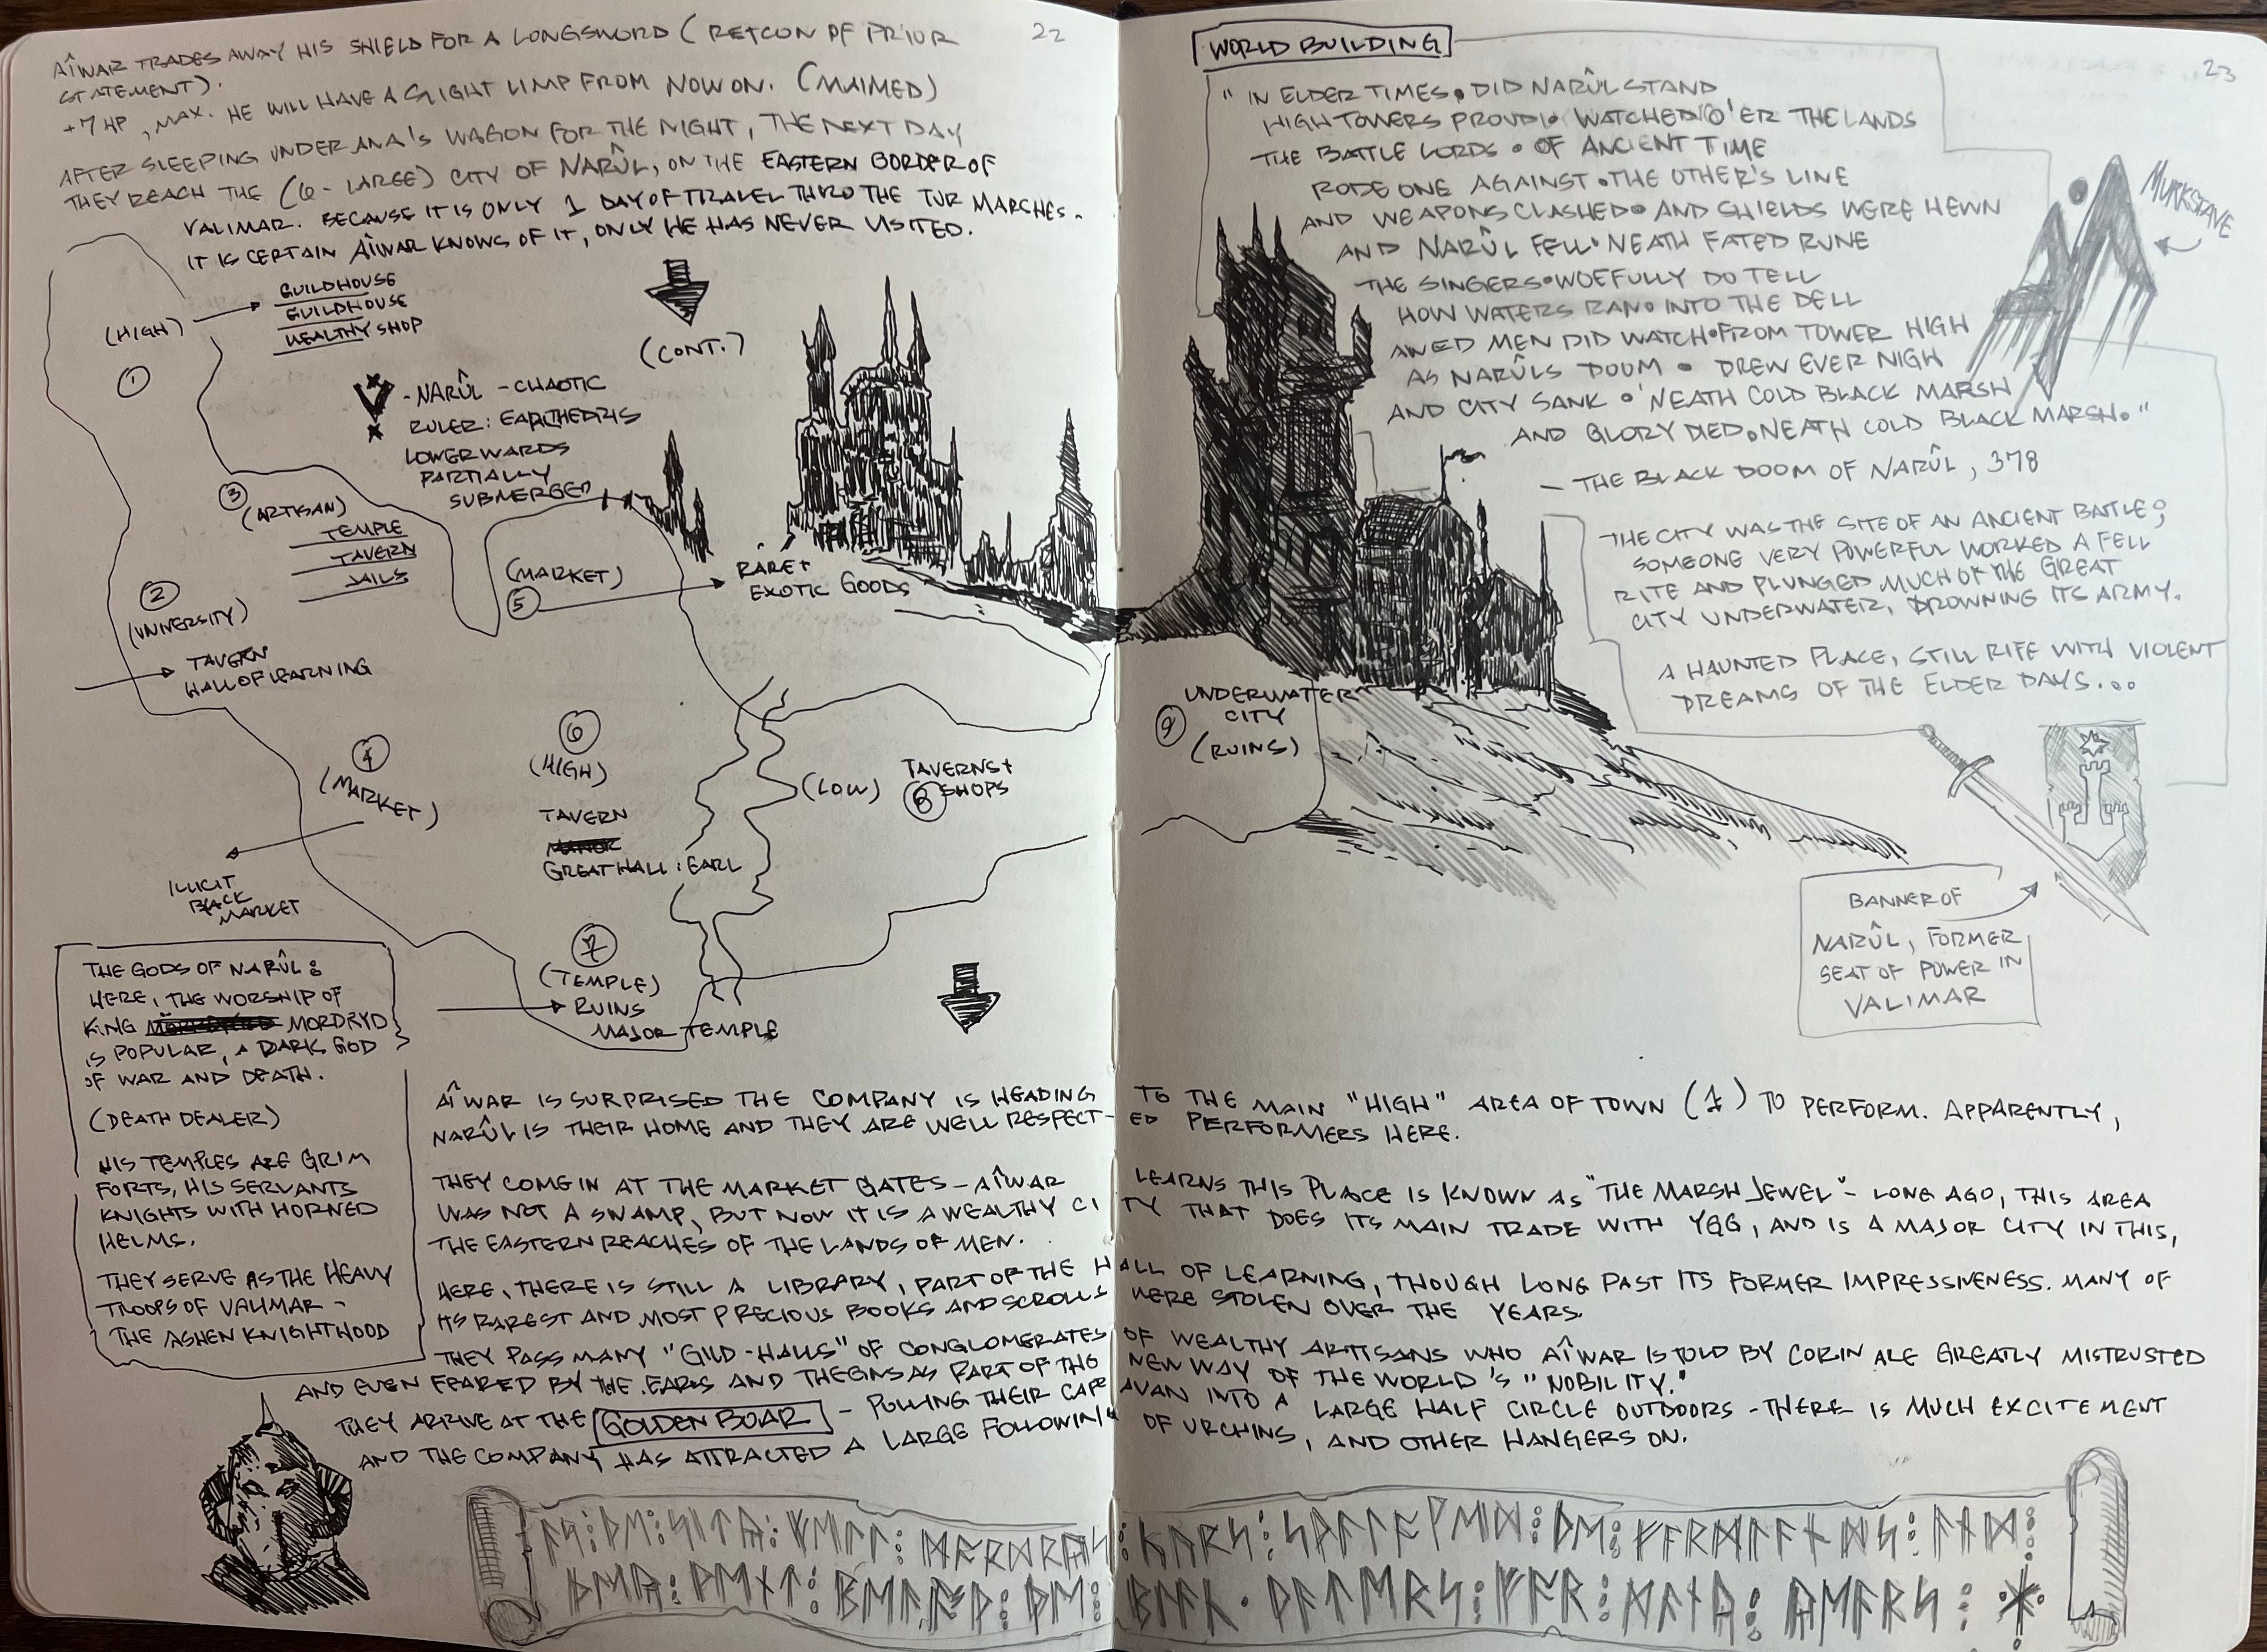 22
AÎWAR TRADES AWAY HIS SHIELD FOR A LONGSWORD (RETCON OF PRIOR
STATEMENT).
+7 HP, MAX. HE WILL HAVE A SLIGHT LIMP FROM NOW ON. (MAIMED)
AFTER SLEEPING UNDER ANA'S WAGON FOR THE NIGHT, THE NEXT DAY
THEY REACH THE (6 - LARGE) CITY OF NARÛL, ON THE EASTERN BORDER OF
VALIMAR. BECAUSE IT IS ONLY 1 DAY OF TRAVEL THRO THE TUR MARCHES.
IT IS CERTAIN AÎWAR KNOWS OF IT, ONLY HE HAS NEVER VISITED.
(HIGH)
1
GUILDHOUSE
GUILDHOUSE
WEALTHY SHOP
(CONT.)
- NARÛL - CHAOTIC
RULER:
LOWER WARDS
PARTIALLY
SUBMERGED
3
(ARTISAN)
TEMPLE
TAVERN
JAILS
(MARKET)
5
RARE +
EXOTIC GOODS
2
(UNIVERSITY)
TAVERN
HALL OF LEARNING
4
(MARKET)
ILLICIT
BLACK
MARKET
6
(HIGH)
TAVERN
GREAT HALL : EARL
(LOW)
TAVERNS +
SHOPS
8
7
(TEMPLE)
RUINS
MAJOR TEMPLE
9
UNDERWATER
CITY
(RUINS)
THE GODS OF NARÛL :
HERE, THE WORSHIP OF
KING MORDRYD
IS POPULAR, A DARK GOD
OF WAR AND DEATH.
(DEATH DEALER)
HIS TEMPLES ARE GRIM
FORTS, HIS SERVANTS
KNIGHTS WITH HORNED
HELMS.
THEY SERVE AS THE HEAVY
TROOPS OF VALIMAR -
THE ASHEN KNIGHTHOOD
WORLD BUILDING
23
" IN ELDER TIMES • DID NARÛL STAND
HIGH TOWERS PROUD • WATCHED O'ER THE LANDS
THE BATTLE LORDS • OF ANCIENT TIME
RODE ONE AGAINST • THE OTHER'S LINE
AND WEAPONS CLASHED • AND SHIELDS WERE HEWN
AND NARÛL FELL • NEATH FATED RUNE
THE SINGERS • WOEFULLY DO TELL
HOW WATERS RAN • INTO THE DELL
AWED MEN DID WATCH • FROM TOWER HIGH
AS NARÛLS DOOM • DREW EVER NIGH
AND CITY SANK • 'NEATH COLD BLACK MARSH
AND GLORY DIED • NEATH COLD BLACK MARSH. "
— THE BLACK DOOM OF NARÛL, 378
MURKSTAVE
THE CITY WAS THE SITE OF AN ANCIENT BATTLE;
SOMEONE VERY POWERFUL WORKED A FELL
RITE AND PLUNGED MUCH OF THE GREAT
CITY UNDERWATER, DROWNING ITS ARMY.
A HAUNTED PLACE, STILL RIFE WITH VIOLENT
DREAMS OF THE ELDER DAYS...
BANNER OF
NARÛL, FORMER
SEAT OF POWER IN
VALIMAR
AÎWAR IS SURPRISED THE COMPANY IS HEADING TO THE MAIN "HIGH" AREA OF TOWN (1) TO PERFORM. APPARENTLY,
NARÛL IS THEIR HOME AND THEY ARE WELL RESPECT-ED PERFORMERS HERE.
THEY COME IN AT THE MARKET GATES - AÎWAR LEARNS THIS PLACE IS KNOWN AS "THE MARSH JEWEL" - LONG AGO, THIS AREA
WAS NOT A SWAMP, BUT NOW IT IS A WEALTHY CITY THAT DOES ITS MAIN TRADE WITH YGG, AND IS A MAJOR CITY IN THIS,
THE EASTERN REACHES OF THE LANDS OF MEN.
HERE, THERE IS STILL A LIBRARY, PART OF THE HALL OF LEARNING, THOUGH LONG PAST ITS FORMER IMPRESSIVENESS. MANY OF
ITS RAREST AND MOST PRECIOUS BOOKS AND SCROLLS WERE STOLEN OVER THE YEARS.
THEY PASS MANY "GILD-HALLS" OF CONGLOMERATES OF WEALTHY ARTISANS WHO AÎWAR IS TOLD BY CORIN ARE GREATLY MISTRUSTED
AND EVEN FEARED BY THE EARLS AND THEGNS AS PART OF THE NEW WAY OF THE WORLD'S "NOBILITY."
THEY ARRIVE AT THE GOLDEN BOAR - PULLING THEIR CARAVAN INTO A LARGE HALF CIRCLE OUTDOORS - THERE IS MUCH EXCITEMENT
AND THE COMPANY HAS ATTRACTED A LARGE FOLLOWING OF URCHINS, AND OTHER HANGERS ON.